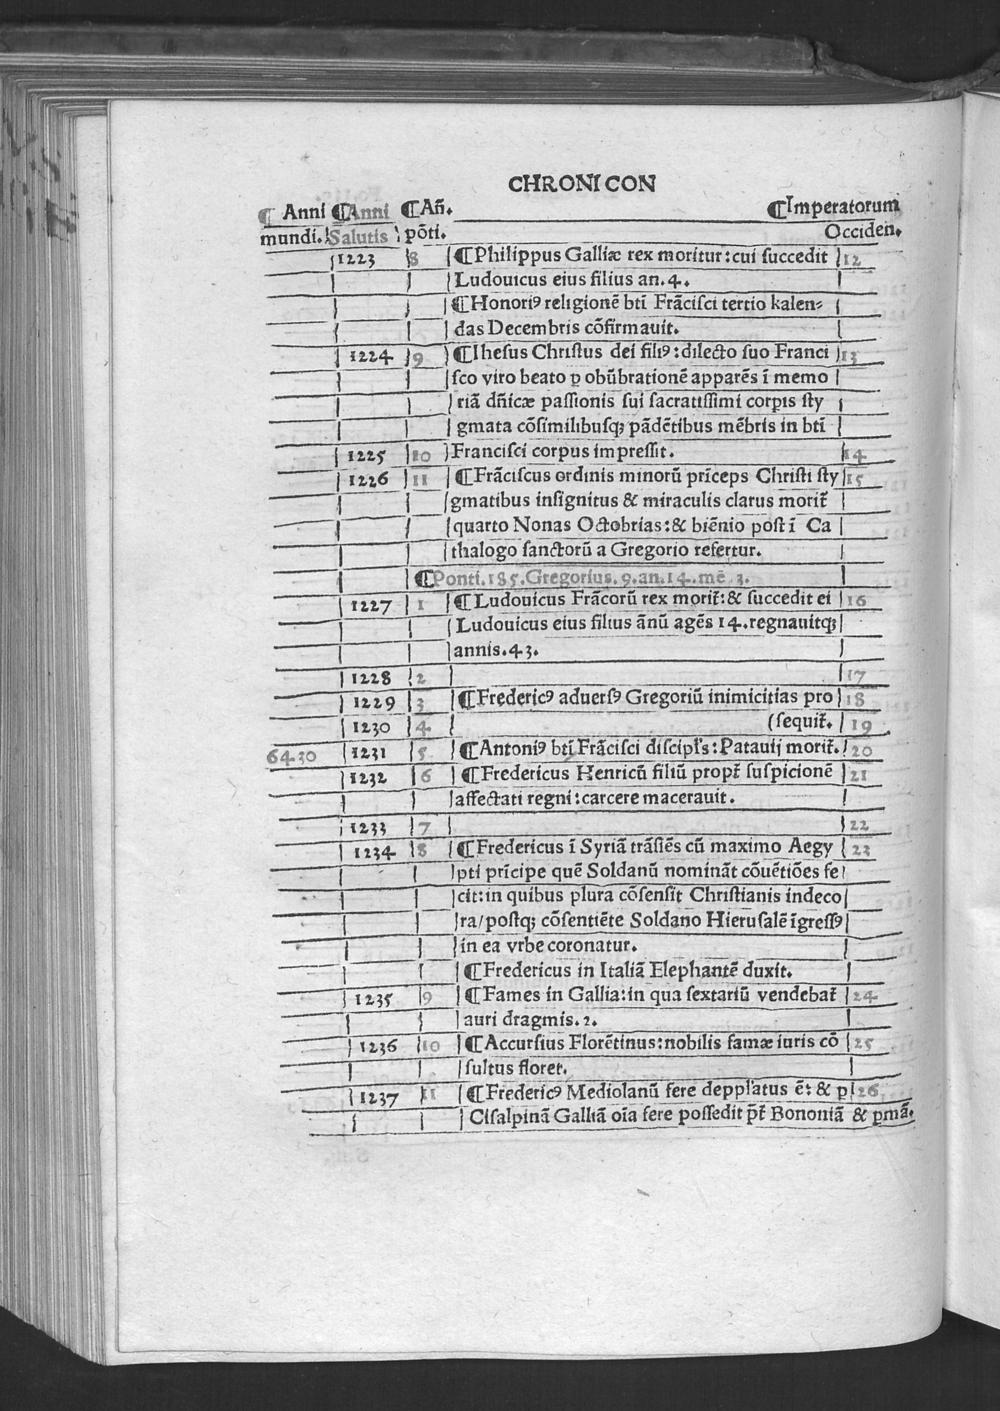 CHRONICON
¶ Anni ¶Anni ¶An̄. ¶Imperatorum
mundi. Salutis põti. Occiden.
1223 8 ¶Philippus Galliæ rex moritur:cui ſuccedit 12
Ludouicus eius filius an.4.
¶Honoriꝰ religionẽ bti Frãciſci tertio kalen⸗
das Decembris cõfirmauit.
1224 9 ¶Iheſus Chriſtus dei filiꝰ:dilecto ſuo Franci 13
ſco viro beato ꝑ obũbrationẽ apparẽs ĩ memo
riã dñicæ paſſionis ſui ſacratiſſimi corꝑis ſty
gmata cõſimilibuſqꝫ pãdẽtibus mẽbris in bti
1225 10 Franciſci corpus impreſſit. 14
1226 11 ¶Frãciſcus ordinis minorũ prĩceps Chriſti ſty 15
gmatibus inſignitus & miraculis clarus morit̃
quarto Nonas Octobrias:& biẽnio poſt ĩ Ca
thalogo ſanctorũ a Gregorio refertur.
¶Ponti.185.Gregorius.9.an.14.mẽ.3.
1227 1 ¶Ludouicus Frãcorũ rex morit̃:& ſuccedit ei 16
Ludouicus eius filius ãnũ agẽs 14.regnauitqꝫ
annis.43.
1228 2 17
1229 3 ¶Fredericꝰ aduerſꝰ Gregoriũ inimicitias pro 18
1230 4 (ſequit̃. 19
6430 1231 5 ¶Antoniꝰ bti Frãciſci diſcipl's:Patauij morit̃. 20
1232 6 ¶Fredericus Henricũ filiũ propt̃ ſuſpicionẽ 21
affectati regni:carcere macerauit.
1233 7 22
1234 8 ¶Fredericus ĩ Syriã trãſiẽs cũ maximo Aegy 23
pti prĩcipe quẽ Soldanũ nominãt cõuẽtiões fe
cit:in quibus plura cõſenſit Chriſtianis indeco
ra/poſtqꝫ cõſentiẽte Soldano Hieruſalẽ ĩgreſſꝰ
in ea vrbe coronatur.
¶Fredericus in Italiã Elephantẽ duxit.
1235 9 ¶Fames in Gallia:in qua ſextariũ vendebat̃ 24
auri dragmis.2.
1236 10 ¶Accurſius Florẽtinus:nobilis famæ iuris cõ 25
ſultus floret.
1237 11 ¶Fredericꝰ Mediolanũ fere deppl'atus ẽ: & p 26
Ciſalpinã Galliã oĩa fere poſſedit p̃t̃ Bononiã & ꝑmã.